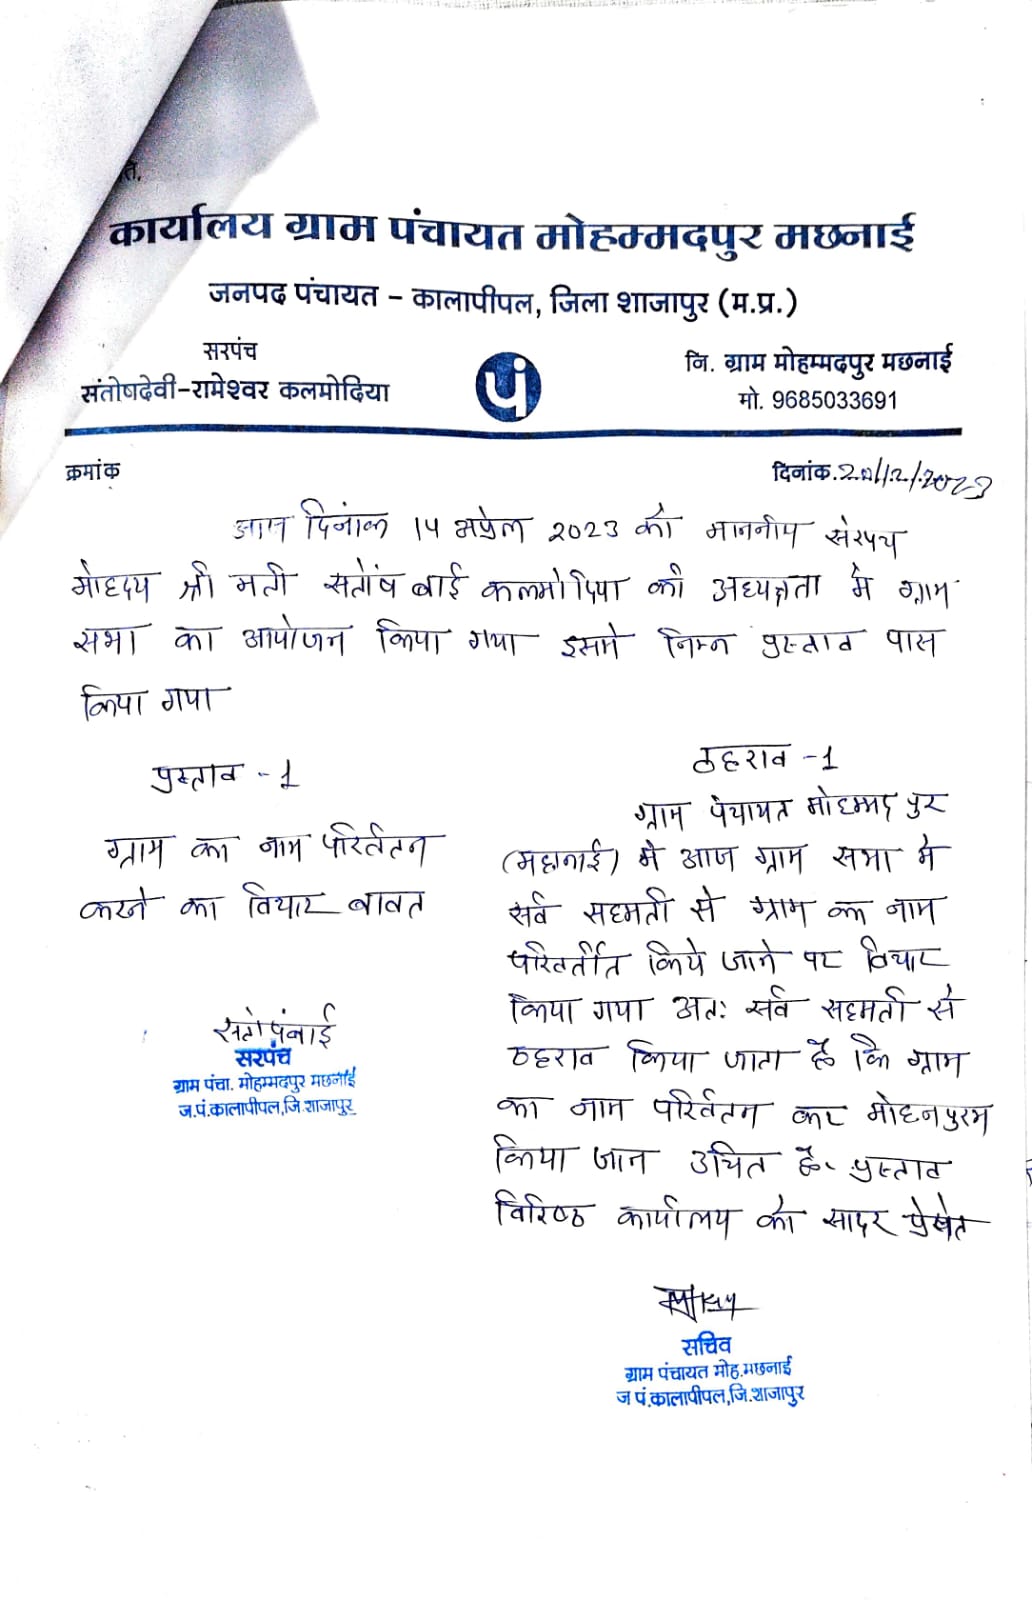 ति.
कार्यालय ग्राम पंचायत मोहम्मदपुर मछनाई
जनपद पंचायत - कालापीपल, जिला शाजापुर (म.प्र.)
सरपंच
संतोषदेवी-रामेश्वर कलमोदिया
पं
नि. ग्राम मोहम्मदपुर मछनाई
मो. 9685033691
क्रमांक
दिनांक.20/12/2023
आज दिनांक 14 अप्रेल 2023 को माननीय संरपच
मोहदय श्री मती सतोंष बाई कलमोदिया की अध्यक्षता मे ग्राम
सभा का आयोजन किया गया इसमे निम्न प्रस्ताव पास
किया गया
प्रस्ताव -1
ग्राम का नाम परिर्वतन
करने का विचार बावत
सतोषंबाई
सरपंच
ग्राम पंचा. मोहम्मदपुर मछनाई
ज.पं.कालापीपल,जि.शाजापुर
ठहराव -1
ग्राम पंचायत मोहम्मद पुर
(मछनाई) मे आज ग्राम सभा मे
सर्व सहमती से ग्राम का नाम
परिवर्तीत किये जाने पर विचार
किया गया अतः सर्व सहमती से
ठहराव किया जाता है कि ग्राम
का नाम परिर्वतन कर मोहनपुरम
किया जान उचित है. प्रस्ताव
विरिष्ठ कार्यालय को सादर प्रेषित
सचिव
ग्राम पंचायत मोह.मछनाई
ज पं.कालापीपल,जि.शाजापुर